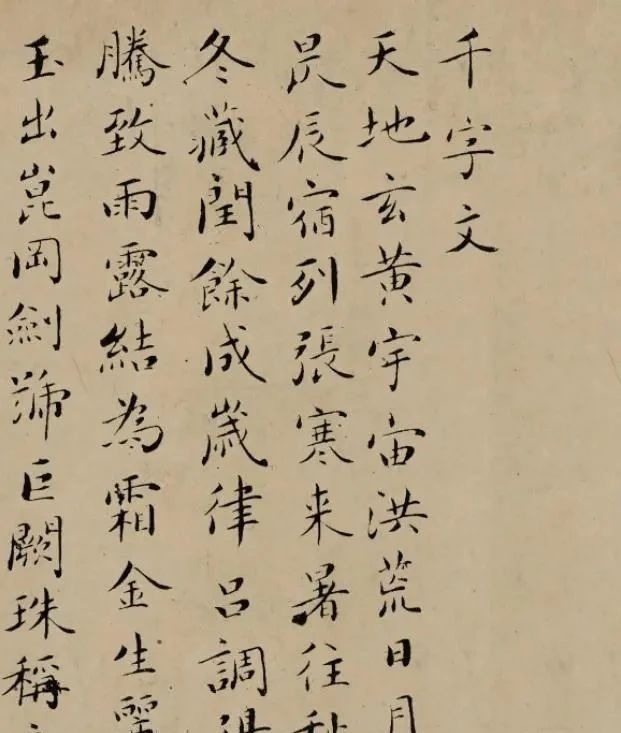 千字文
天地玄黃宇宙洪荒日月
昃辰宿列張寒来暑往秋
冬藏閏餘成歲律呂調陽
騰致雨露結為霜金生麗
玉出崑岡劍號巨闕珠稱